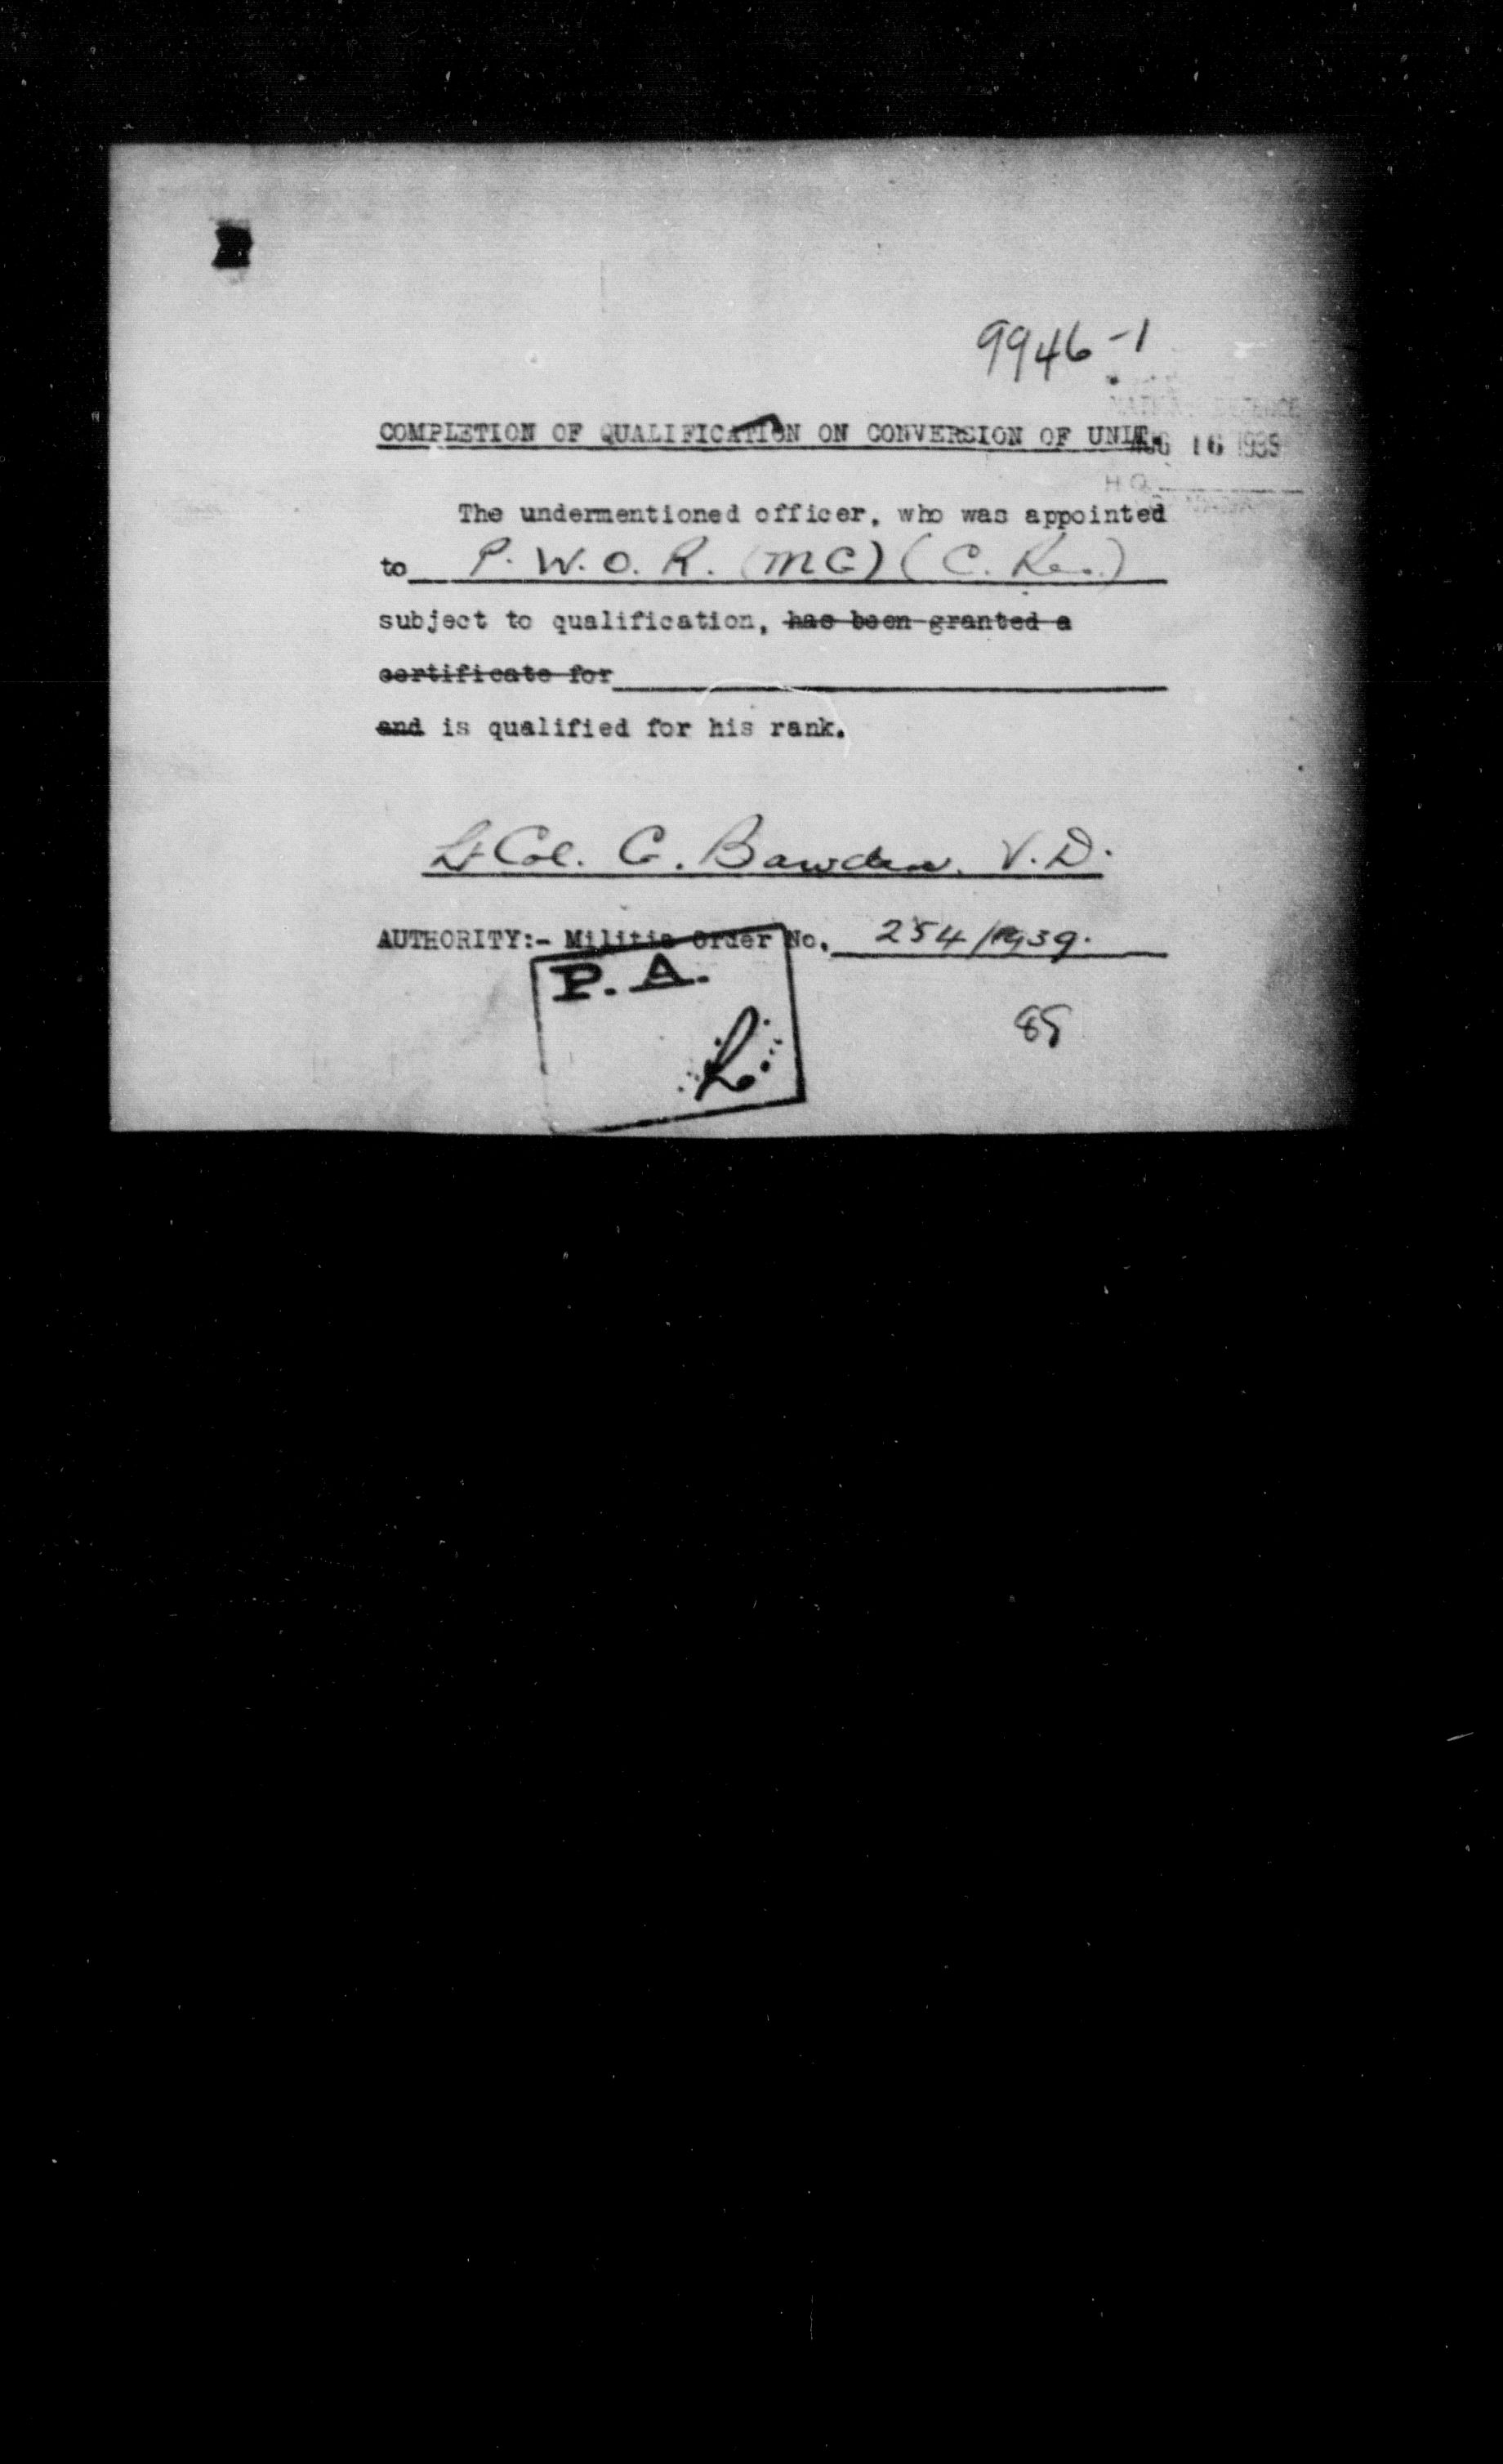 9946-1
NATIONAL DEFENCE
COMPLETION OF QUALIFICATION ON CONVERSION OF UNIT.
AUG 16 1939
H Q
The undermentioned officer, who was appointed
to P. W. O. R. (MG) (C. Res.)
subject to qualification, has been granted a
certificate for
and is qualified for his rank.
Lt Col. G. Bawden. V.D.
AUTHORITY:- Militia Order No. 254/1939.
P. A.
85